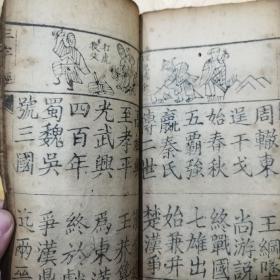 周轍東王綱
逞干戈尚游說
始春秋終戰國
五霸強七雄出
嬴秦氏始兼并
傳二世楚漢爭
打虎
救父
至孝平王莽
光武興為東漢
四百年終於獻
蜀魏吳爭漢鼎
號三國迄兩
三字經